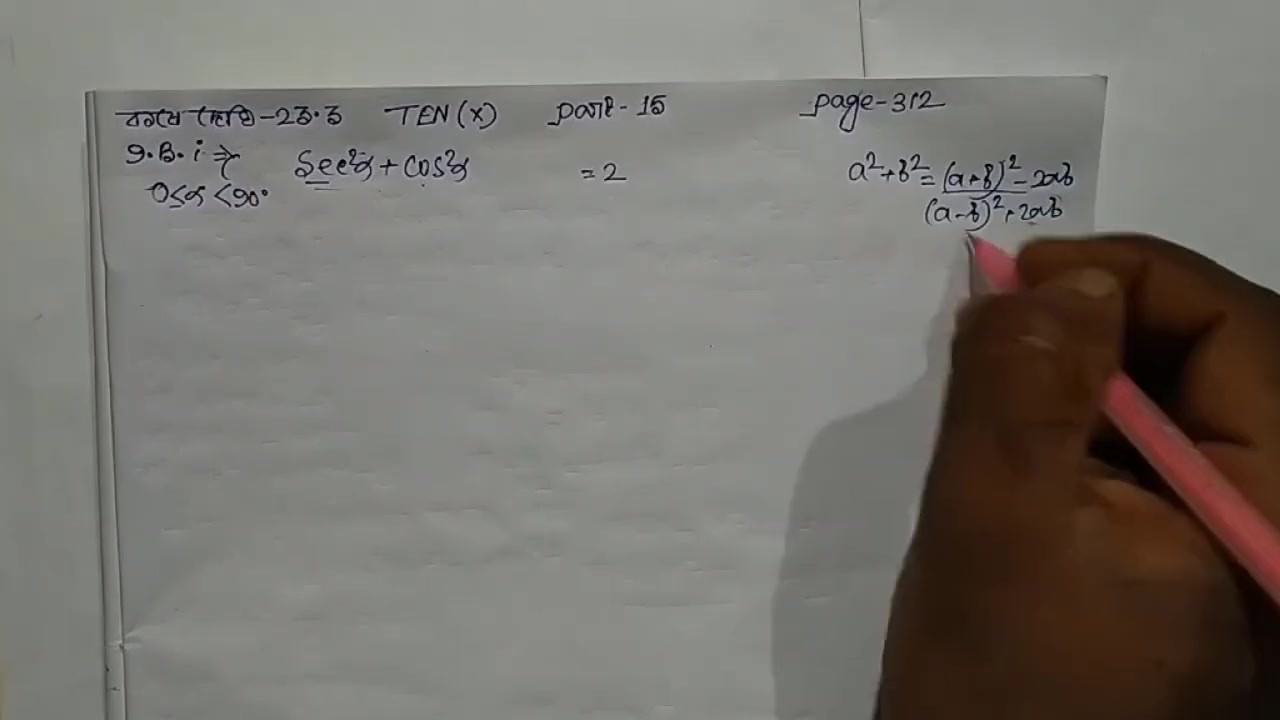 কষে দেখি-23.3 TEN (X) part-15 page-312
9.B.i ⇒ Sec²α + cos²α = 2 a²+b² = (a+b)² - 2ab
0≤α<90° (a-b)² + 2ab